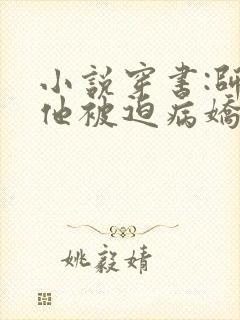 小說穿書:師
他被迫病嬌
姚毅婧